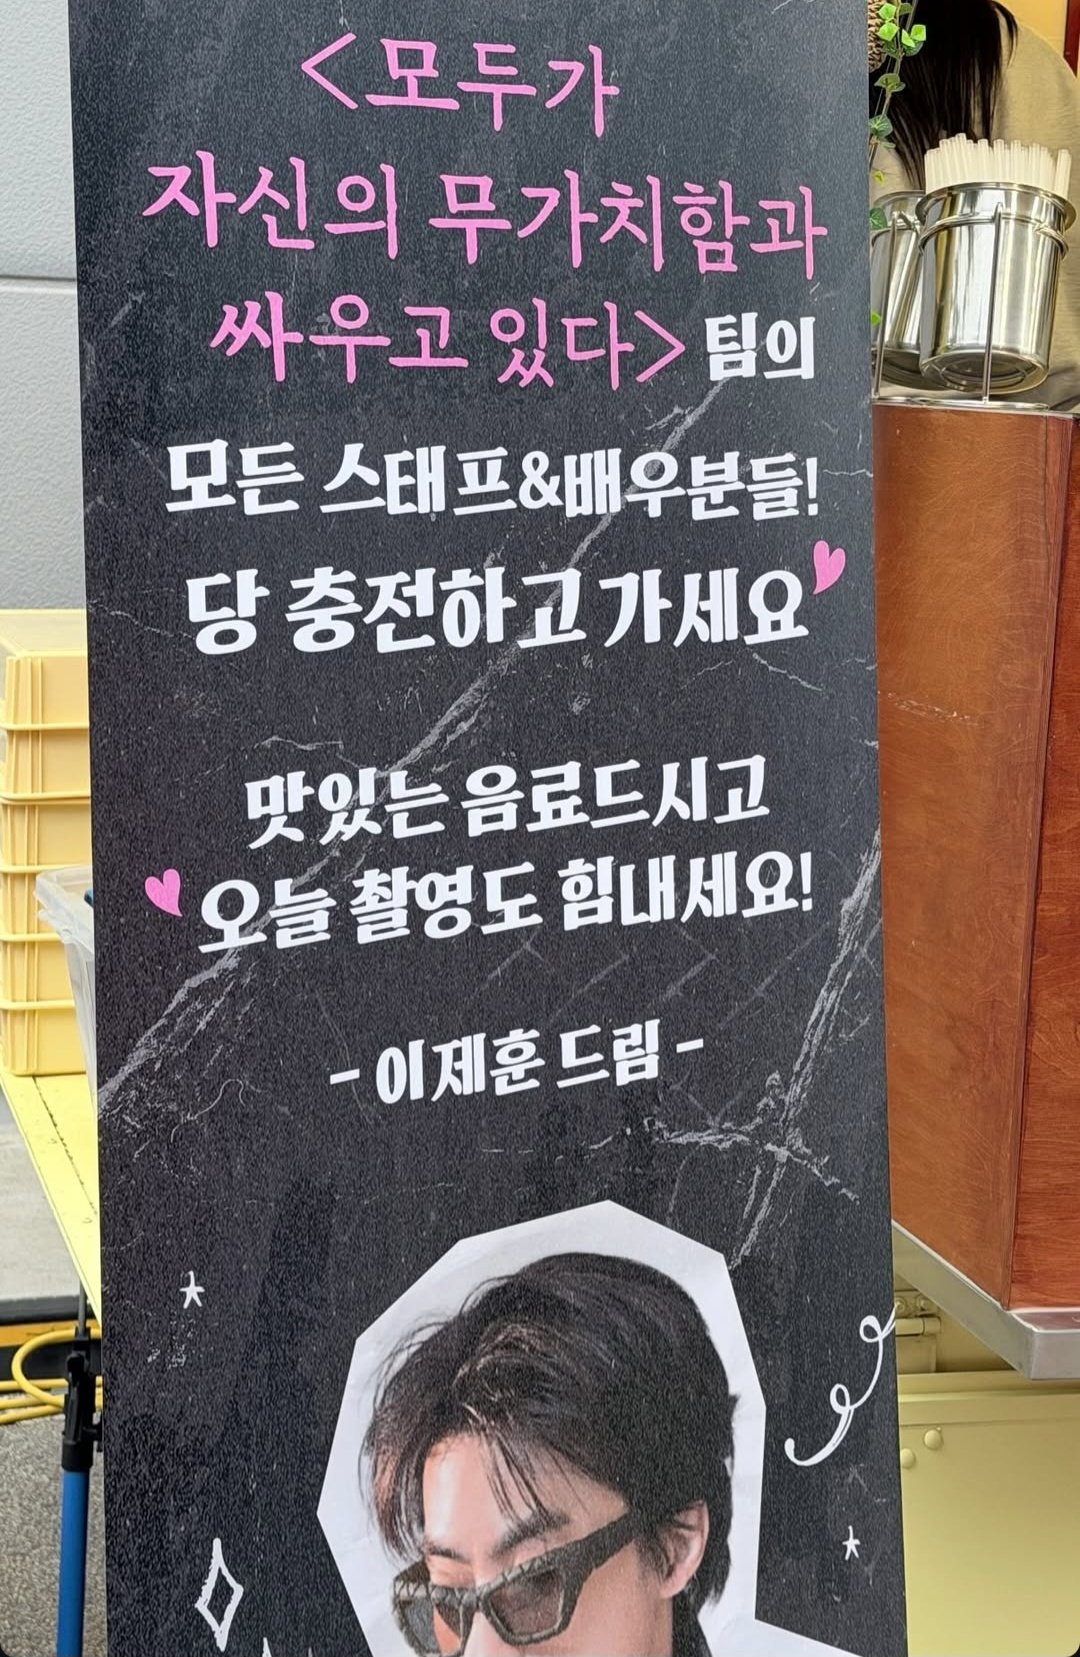 <모두가
자신의 무가치함과
싸우고 있다> 팀의
모든 스태프&배우분들!
당 충전하고 가세요
맛있는 음료드시고
오늘 촬영도 힘내세요!
- 이제훈 드림 -